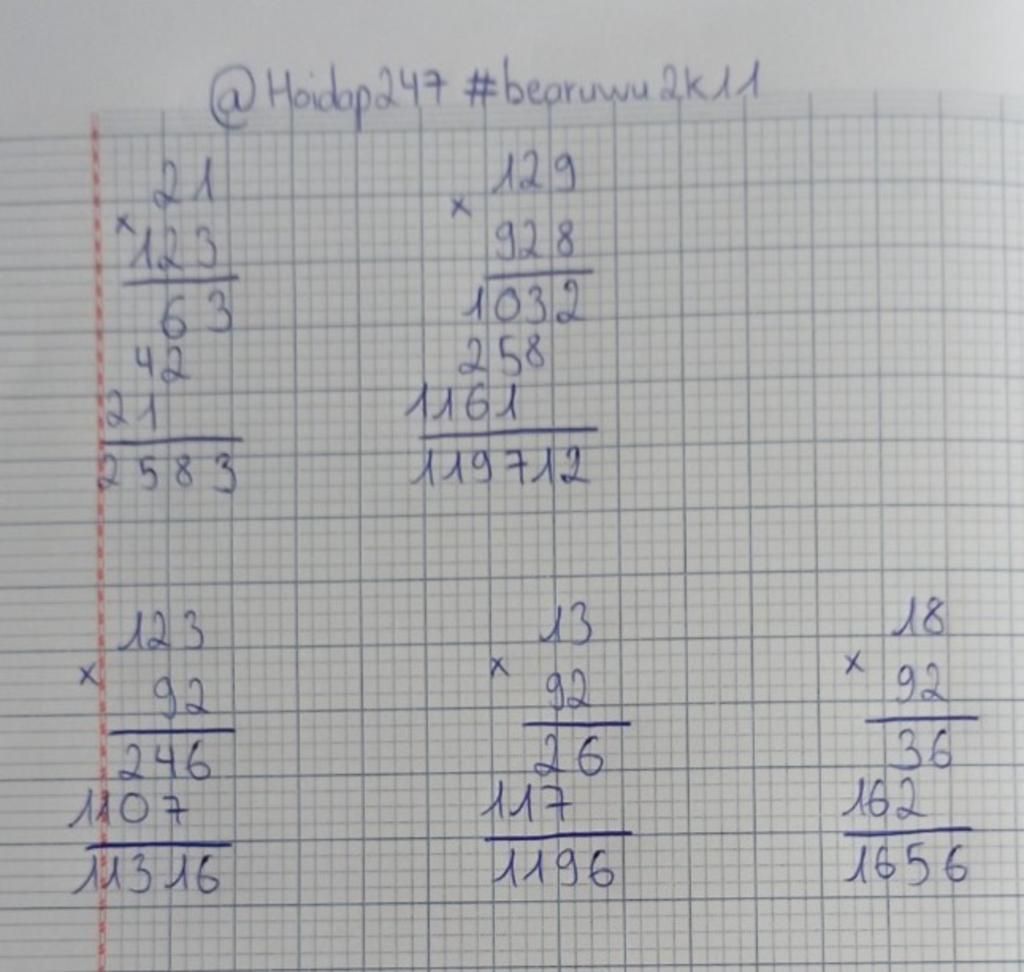 @Hoidap247 #bearuwu2k11
21
×
123
63
42
21
2583
129
×
928
1032
258
1161
119712
123
×
92
246
1107
11316
13
×
92
26
117
1196
18
×
92
36
162
1656